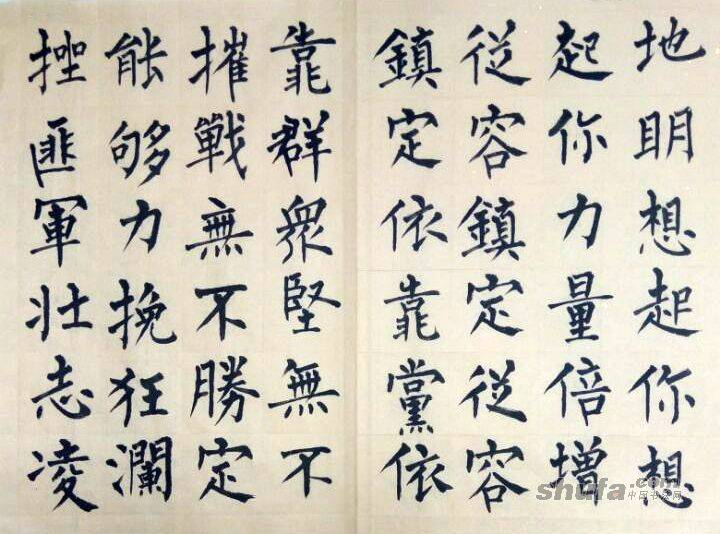 地明想起你想
起你力量倍增
従容鎮定従容
鎮定依靠黨依
靠群衆堅無不
摧戰無不勝定
能够力挽狂瀾
挫匪軍壮志凌
shufa.com
中国书法网